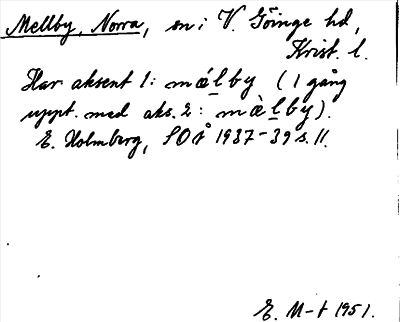 Mellby, Norra, sn i V. Göinge hd,
Krist. l.
Har aksent 1: mǽlby (1 gång
uppt. med aks. 2: mæ̀lby).
E. Holmberg, SOÅ 1937-39 s. 11.
E. M-t 1951.